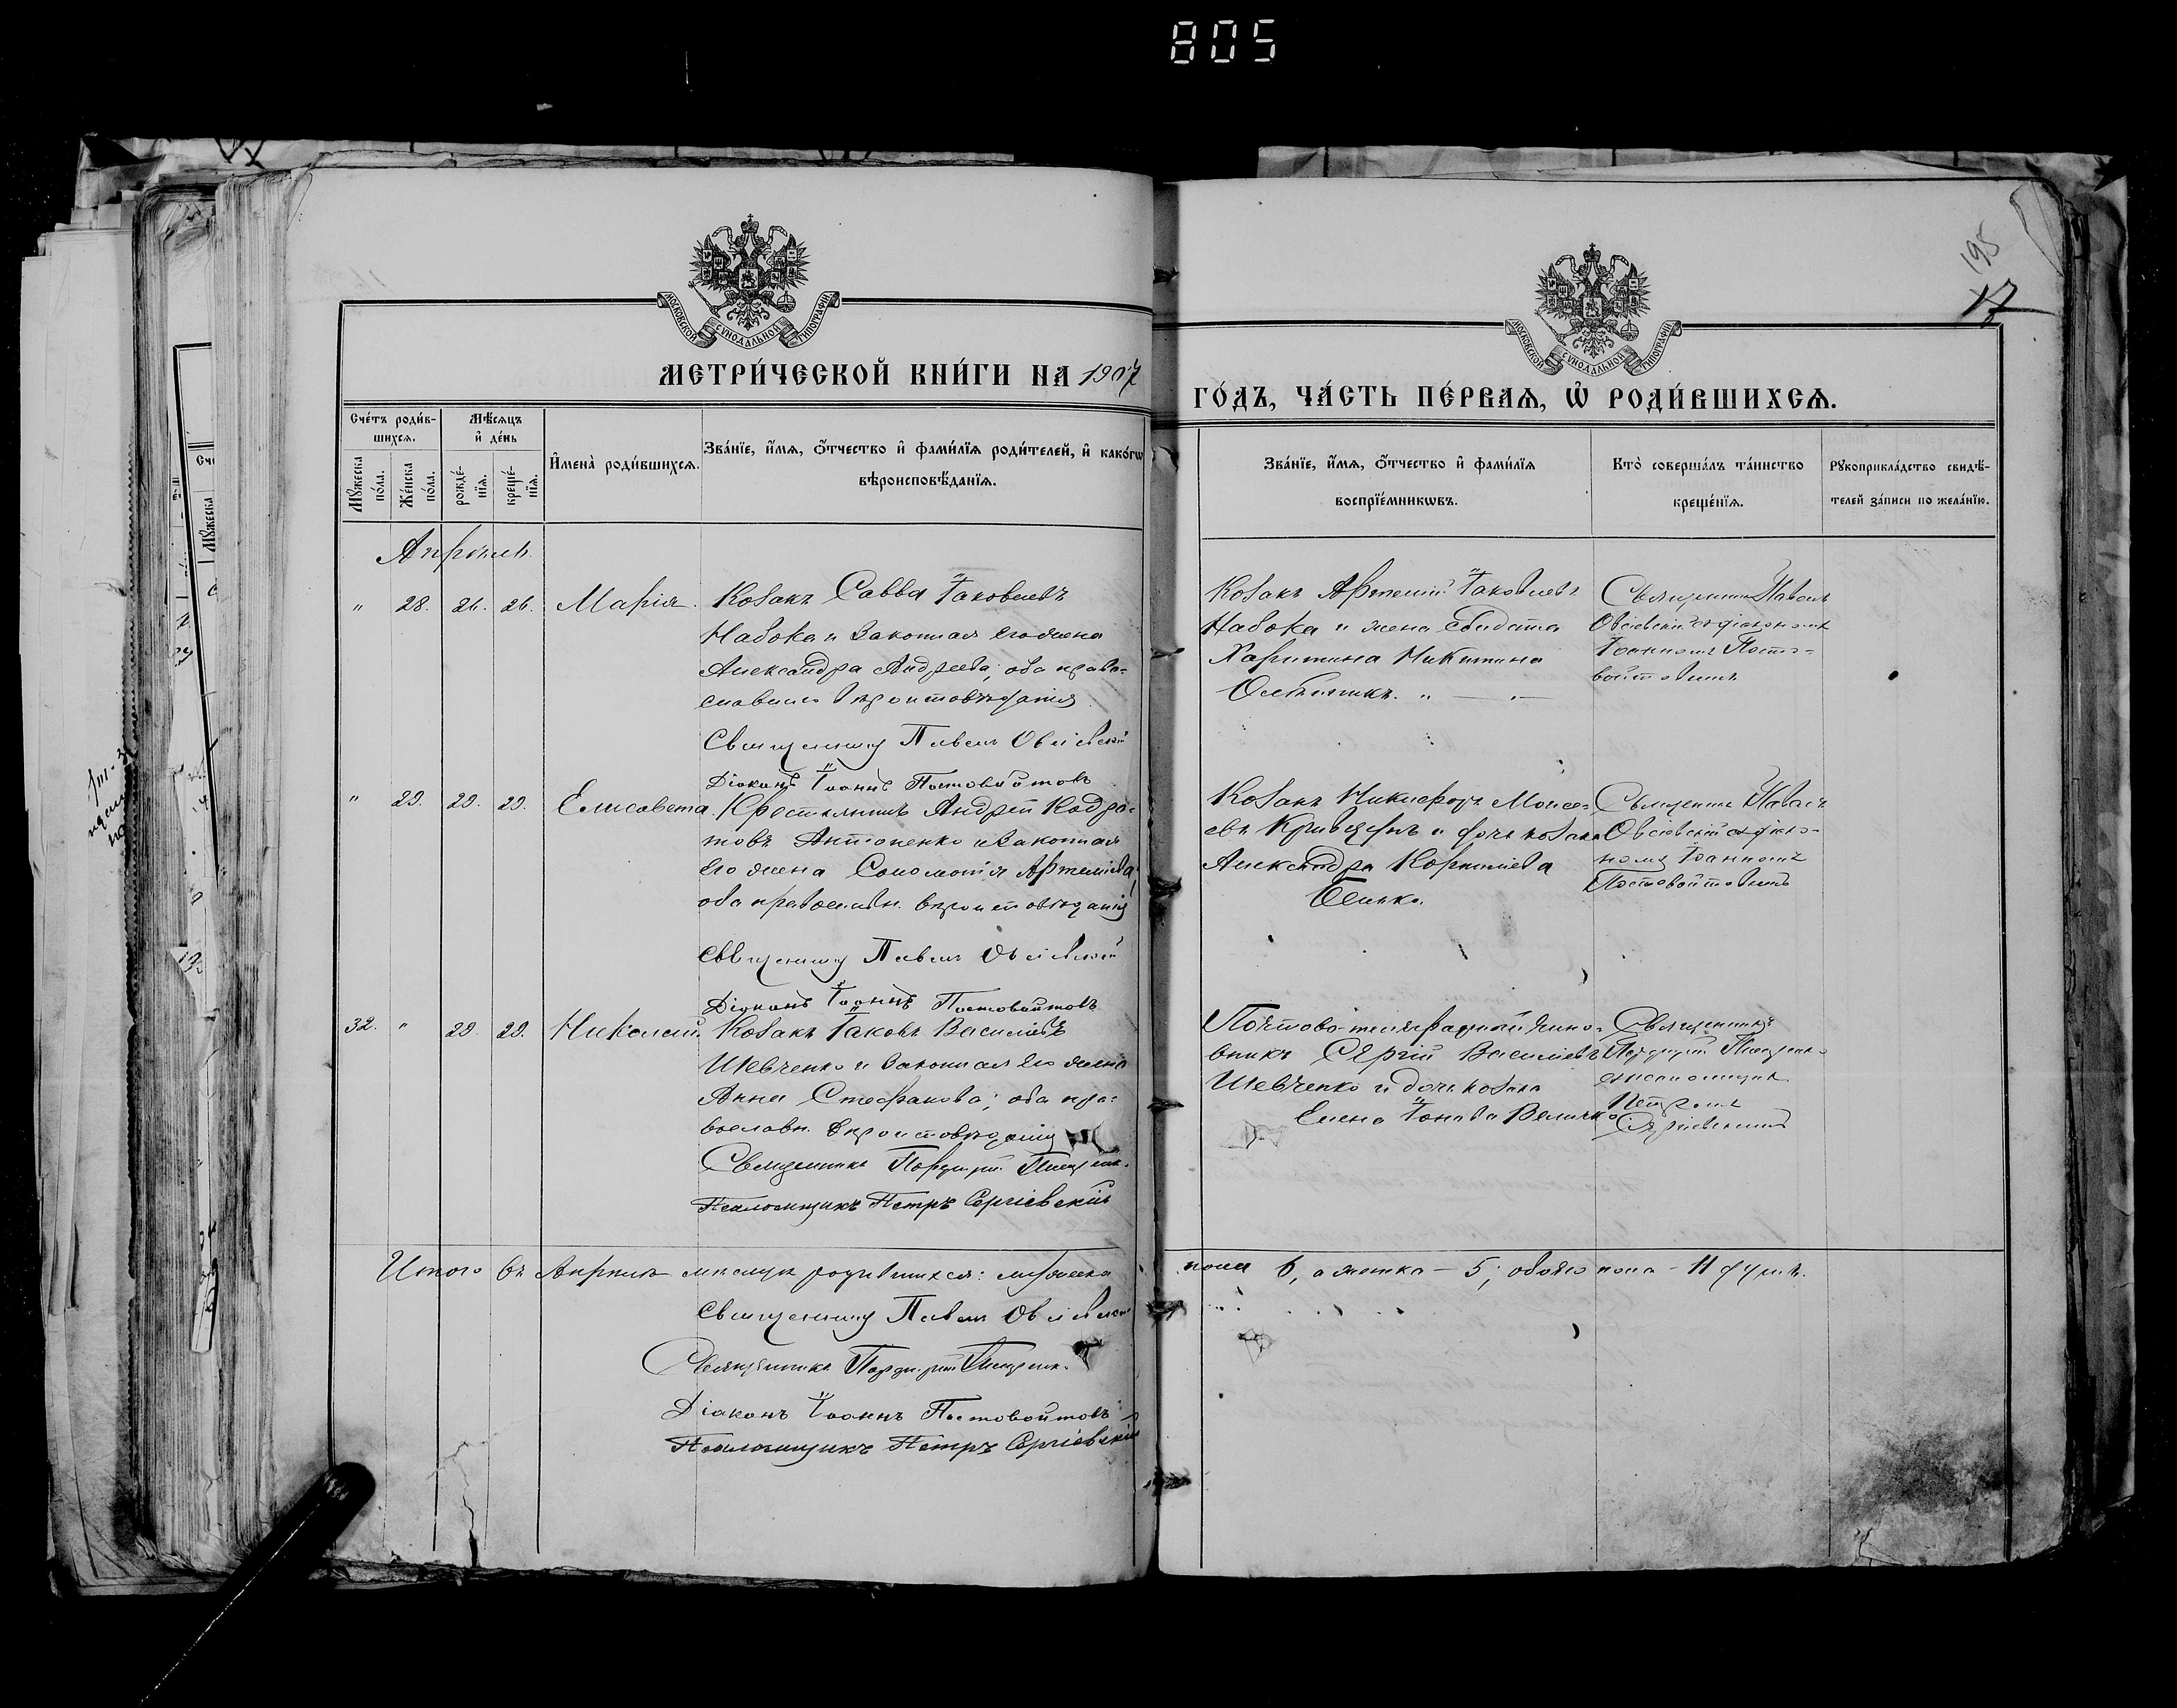 805
195
17
МОСКОВСКОЙ СѴНОДАЛЬНОЙ ТИПОГРАФІИ
МОСКОВСКОЙ СѴНОДАЛЬНОЙ ТИПОГРАФІИ
МЕТРИ́ЧЕСКОЙ КНИ́ГИ НА 1907
ГО́ДЪ, ЧА́СТЬ ПЕ́РВАѦ, Ѡ҆ РОДИ́ВШИХСѦ.
Сче́тъ роди́в-
шихсѧ.
Мѣ́сѧцъ
и҆ де́нь
И҆мена̀ роди́вшихсѧ.
Зва́нїе, и҆́мѧ, ѻ҆́тчество и҆ фами́лїѧ роди́телей, и҆ како́гѡ
вѣроисповѣ́данїѧ.
Мꙋ́жеска
по́ла.
Же́нска
по́ла.
рожде́-
нїѧ.
креще́-
нїѧ.
Зва́нїе, и҆́мѧ, ѻ҆́тчество и҆ фами́лїѧ
воспрїе́мникѡвъ.
Кто̀ соверша́лъ та́инство
креще́нїѧ.
Рꙋкоприкла́дство свидѣ́-
телей за́писи по жела́нїю.
Апрѣль.
" 28. 26. 26. Марія.
Козакъ Савва Іаковлевъ
Набока и законная его жена
Александра Андреева; оба право-
славнаго вѣроисповѣданія
Священникъ Павелъ Овсіевскій
Діаконъ Іоаннъ Постовойтовъ
Козакъ Артемій Іаковлевъ
Набока и жена
Харитина Никитина
Священникъ Павелъ
Овсіевскій съ діакономъ
Іоанномъ Посто-
войтовымъ
" 29. 29. 29. Елисавета.
Крестьянинъ Андрей Кодра-
товъ Антоненко и законная
его жена Соломонія Артеміева,
оба православн. вѣроисповѣданія
Священникъ Павелъ Овсіевскій
Діаконъ Іоаннъ Постовойтовъ
Козакъ Никифоръ Моисе-
евъ и дочь козака
Александра Корнилиева
Священникъ Павелъ
Овсіевскій съ діако-
номъ Іоанномъ
Постовойтовымъ
32. " 29. 29. Николай.
Козакъ Іаковъ Василіевъ
Шевченко и законная его жена
Анна Стефанова; оба пра-
вославн. вѣроисповѣданія
Священникъ Порфирій
Псаломщикъ Петръ Сергіевскій
Почтово-телеграфный чино-
вникъ Сергій Василіевъ
Шевченко и дочь козака
Елена Іонова Величко
Священникъ
Порфирій
съ псаломщик.
Петромъ
Сергіевскимъ
Итого въ Апрѣлѣ мѣсяцѣ родившихся: мужеска
пола 6, а женска - 5; обоего пола - 11 душъ.
Священникъ Павелъ Овсіевскій
Священникъ Порфирій
Діаконъ Іоаннъ Постовойтовъ
Псаломщикъ Петръ Сергіевскій